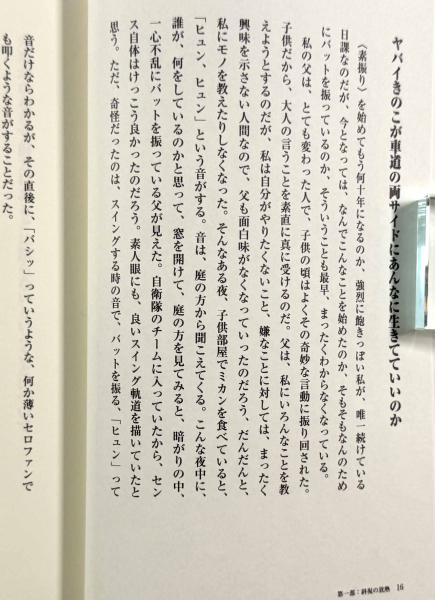 ヤバイきのこが車道の両サイドにあんなに生きてていいのか
〈素振り〉を始めてもう何十年になるのか、強烈に飽きっぽい私が、唯一続けている
日課なのだが、今となっては、なんでこんなことを始めたのか、そもそもなんのため
にバットを振っているのか、そういうことも最早、まったくわからなくなっている。
私の父は、とても変わった人で、子供の頃はよくその奇妙な言動に振り回された。
子供だから、大人の言うことを素直に真に受けるのだ。父は、私にいろんなことを教
えようとするのだが、私は自分がやりたくないこと、嫌なことに対しては、まったく
興味を示さない人間なので、父も面白味がなくなっていったのだろう、だんだんと、
私にモノを教えたりしなくなった。そんなある夜、子供部屋でミカンを食べていると、
「ヒュン、ヒュン」という音がする。音は、庭の方から聞こえてくる。こんな夜中に、
誰が、何をしているのかと思って、窓を開けて、庭の方を見てみると、暗がりの中、
一心不乱にバットを振っている父が見えた。自衛隊のチームに入っていたから、セン
ス自体はけっこう良かったのだろう。素人眼にも、良いスイング軌道を描いていたと
思う。ただ、奇怪だったのは、スイングする時の音で、バットを振る、「ヒュン」って
音だけならわかるが、その直後に、「バシッ」っていうような、何か薄いセロファンで
も叩くような音がすることだった。
第一部：斜視の放熱 16